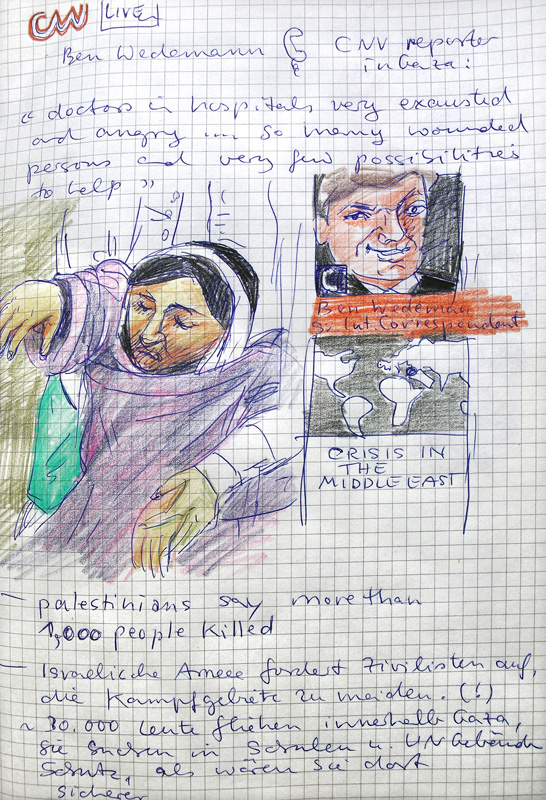 CNN LIVE!
Ben Wedemann CNN reporter
in Gaza:
“ doctors in hospitals very exausted
and angry .... so many wounded
persons and very few possibilities
to help ”
Ben Wedeman
S. Int. Correspondent
CRISIS IN
THE
MIDDLE EAST
— palestinians say more than
1,000 people killed
— Israeliche Armee fordert Zivilisten auf,
die Kampfgebiete zu meiden. (!)
~ 70.000 leute fliehen innerhalb Gaza,
sie suchen in Schulen u. UN Gebäude
Schutz, als wären sie dort
sicherer